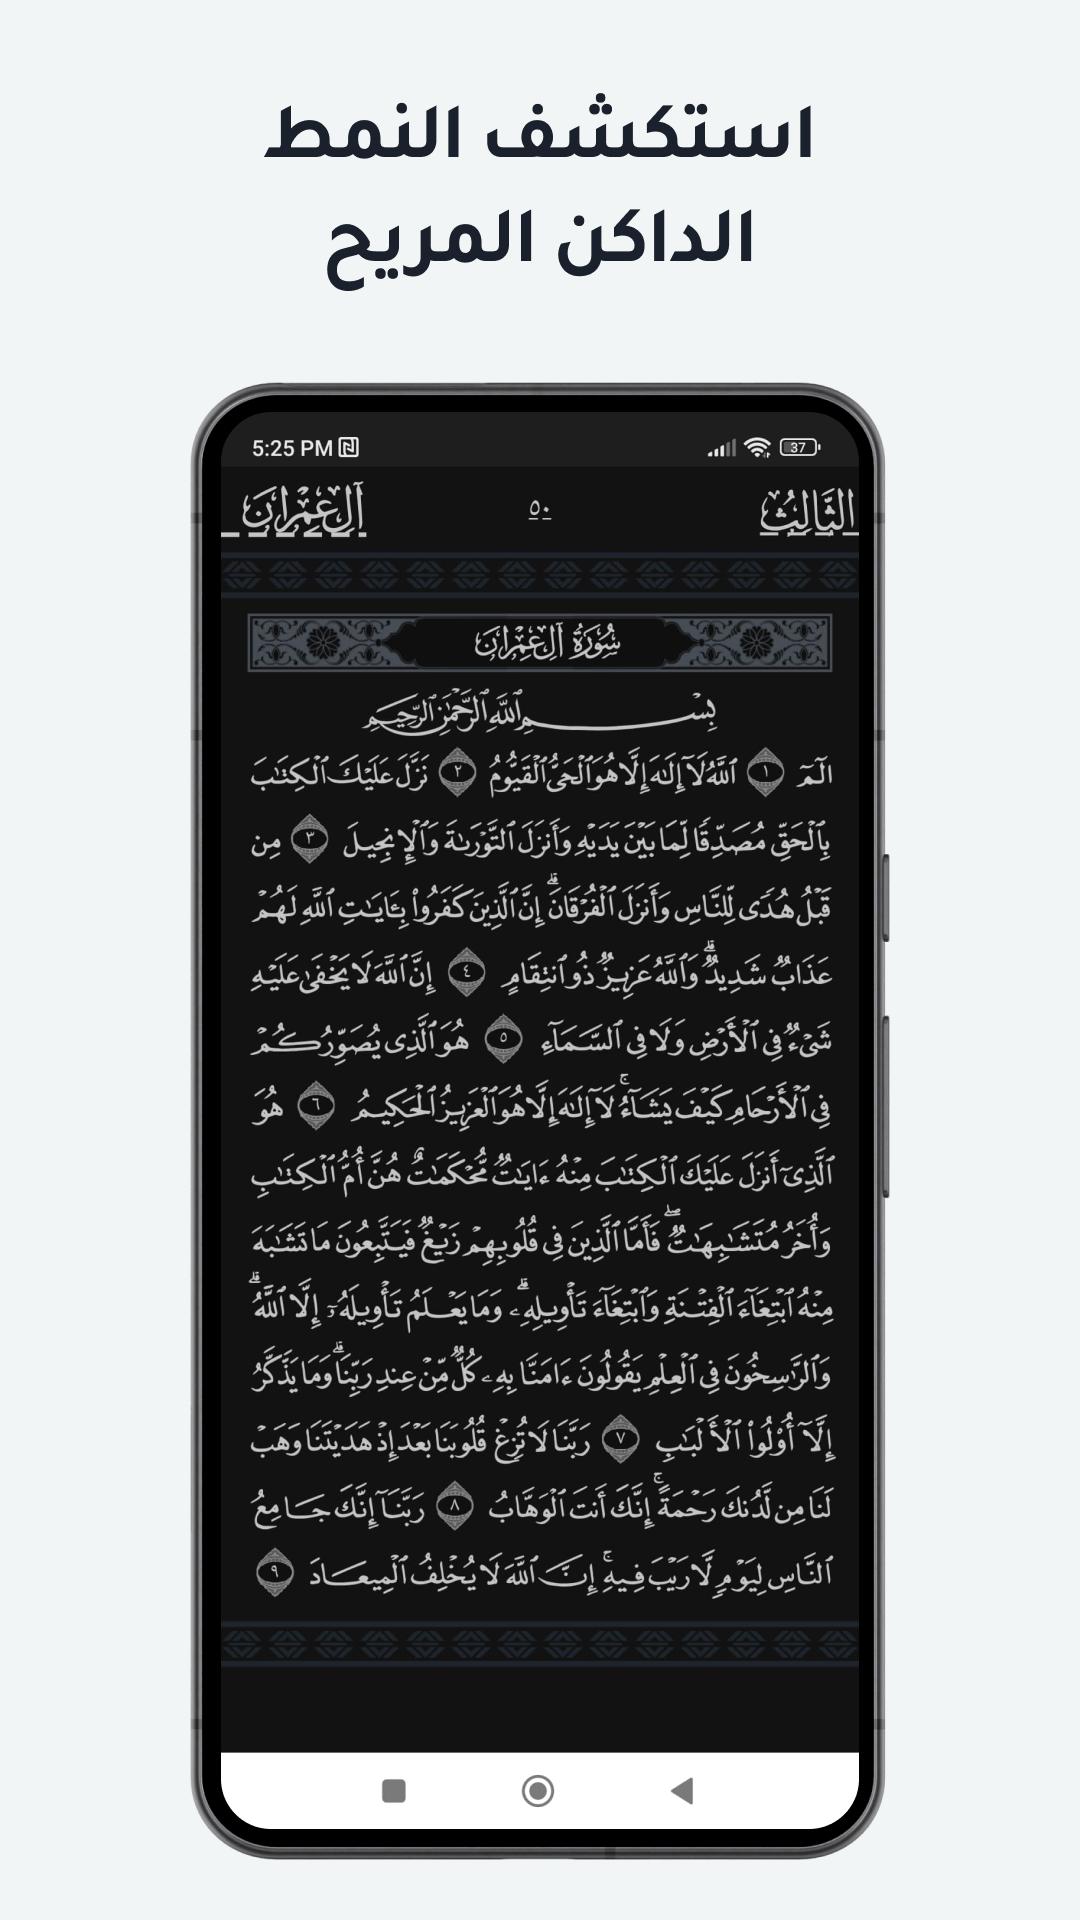 استكشف النمط
الداكن المريح
5:25 PM
37
الثَّالِثُ
٥٠
آلِ عِمْرَانَ
سُورَةُ آلِ عِمْرَانَ
بِسْمِ ٱللَّهِ ٱلرَّحْمَٰنِ ٱلرَّحِيمِ
الٓمٓ ١ ٱللَّهُ لَآ إِلَٰهَ إِلَّا هُوَ ٱلْحَىُّ ٱلْقَيُّومُ ٢ نَزَّلَ عَلَيْكَ ٱلْكِتَٰبَ
بِٱلْحَقِّ مُصَدِّقًا لِّمَا بَيْنَ يَدَيْهِ وَأَنزَلَ ٱلتَّوْرَىٰةَ وَٱلْإِنجِيلَ ٣ مِن
قَبْلُ هُدًى لِّلنَّاسِ وَأَنزَلَ ٱلْفُرْقَانَ ۗ إِنَّ ٱلَّذِينَ كَفَرُوا۟ بِـَٔايَٰتِ ٱللَّهِ لَهُمْ
عَذَابٌ شَدِيدٌ ۗ وَٱللَّهُ عَزِيزٌ ذُو ٱنتِقَامٍ ٤ إِنَّ ٱللَّهَ لَا يَخْفَىٰ عَلَيْهِ
شَىْءٌ فِى ٱلْأَرْضِ وَلَا فِى ٱلسَّمَآءِ ٥ هُوَ ٱلَّذِى يُصَوِّرُكُمْ
فِى ٱلْأَرْحَامِ كَيْفَ يَشَآءُ ۚ لَآ إِلَٰهَ إِلَّا هُوَ ٱلْعَزِيزُ ٱلْحَكِيمُ ٦ هُوَ
ٱلَّذِىٓ أَنزَلَ عَلَيْكَ ٱلْكِتَٰبَ مِنْهُ ءَايَٰتٌ مُّحْكَمَٰتٌ هُنَّ أُمُّ ٱلْكِتَٰبِ
وَأُخَرُ مُتَشَٰبِهَٰتٌ ۖ فَأَمَّا ٱلَّذِينَ فِى قُلُوبِهِمْ زَيْغٌ فَيَتَّبِعُونَ مَا تَشَٰبَهَ
مِنْهُ ٱبْتِغَآءَ ٱلْفِتْنَةِ وَٱبْتِغَآءَ تَأْوِيلِهِۦ ۗ وَمَا يَعْلَمُ تَأْوِيلَهُۥٓ إِلَّا ٱللَّهُ ۗ
وَٱلرَّٰسِخُونَ فِى ٱلْعِلْمِ يَقُولُونَ ءَامَنَّا بِهِۦ كُلٌّ مِّنْ عِندِ رَبِّنَا ۗ وَمَا يَذَّكَّرُ
إِلَّآ أُو۟لُوا۟ ٱلْأَلْبَٰبِ ٧ رَبَّنَا لَا تُزِغْ قُلُوبَنَا بَعْدَ إِذْ هَدَيْتَنَا وَهَبْ
لَنَا مِن لَّدُنكَ رَحْمَةً ۚ إِنَّكَ أَنتَ ٱلْوَهَّابُ ٨ رَبَّنَآ إِنَّكَ جَامِعُ
ٱلنَّاسِ لِيَوْمٍ لَّا رَيْبَ فِيهِ ۚ إِنَّ ٱللَّهَ لَا يُخْلِفُ ٱلْمِيعَادَ ٩